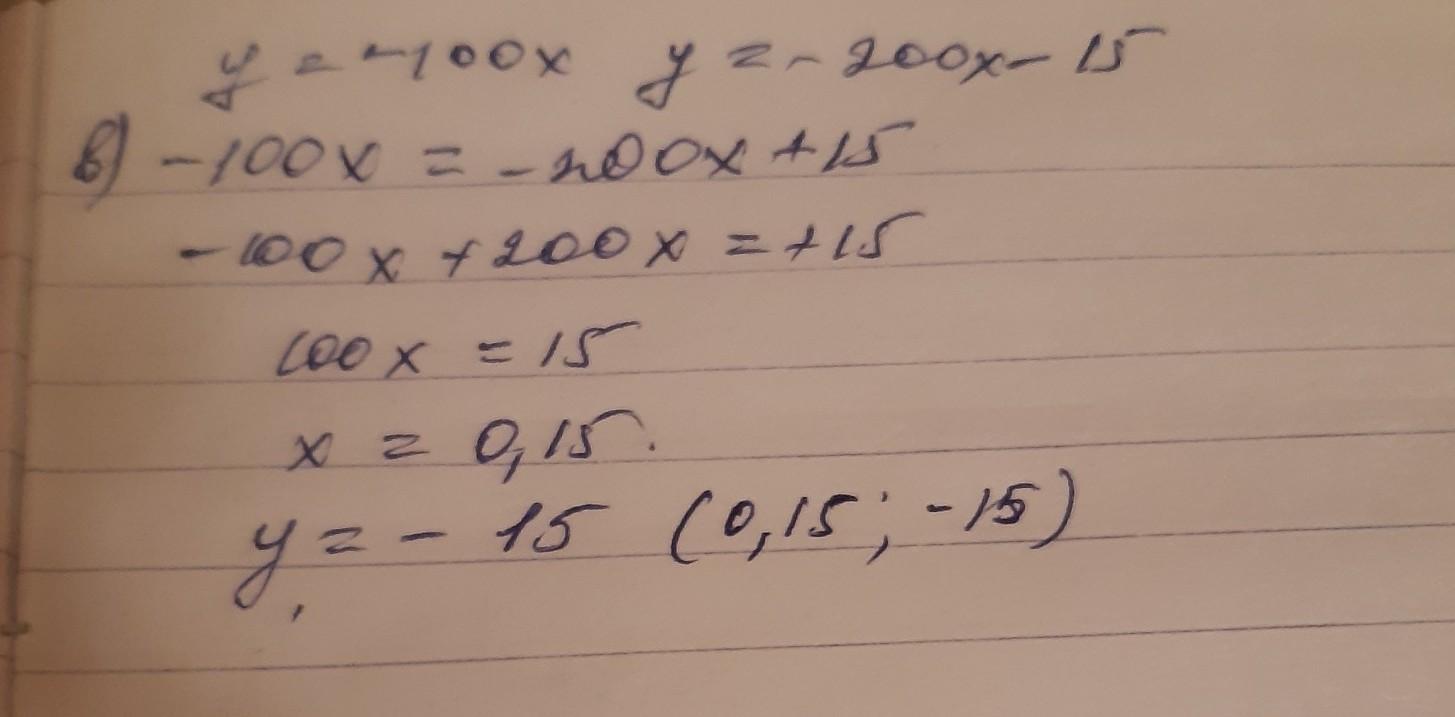 y = -100x y = -200x - 15
в) -100x = -200x + 15
-100x + 200x = +15
100x = 15
x = 0,15.
y = - 15 (0,15; -15)